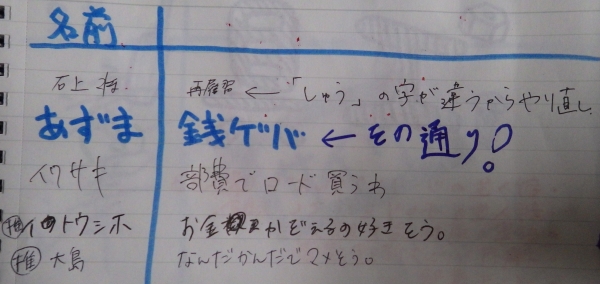 名前
石上 再履習 ← 「しゅう」の字が違うからやり直し
あずま 銭ゲバ ← その通り!
イワサキ 部費でロード買うわ
推 イトウシホ お金かぞえるの好きそう。
推 大島 なんだかんだでマメそう。